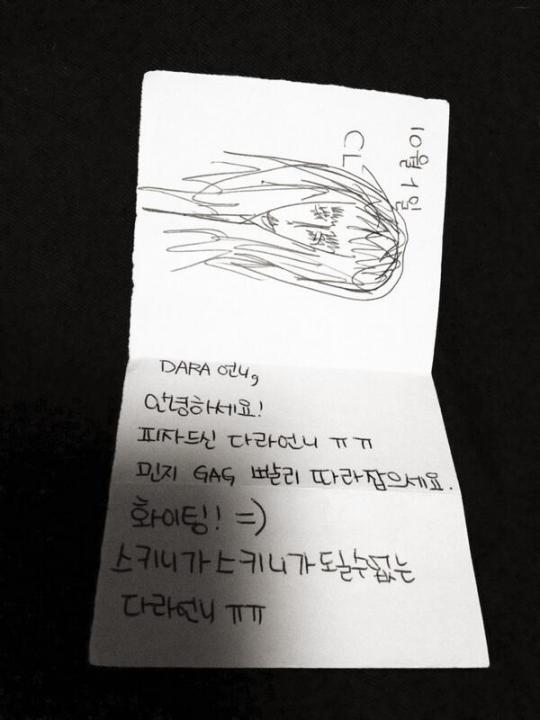 10월 1일
CL
DARA 언니,
안녕하세요!
피자드신 다라언니 ㅠㅠ
민지 GAG 빨리 따라잡으세요.
화이팅! =)
스키니가 스키니가 될수없는
다라언니 ㅠㅠ